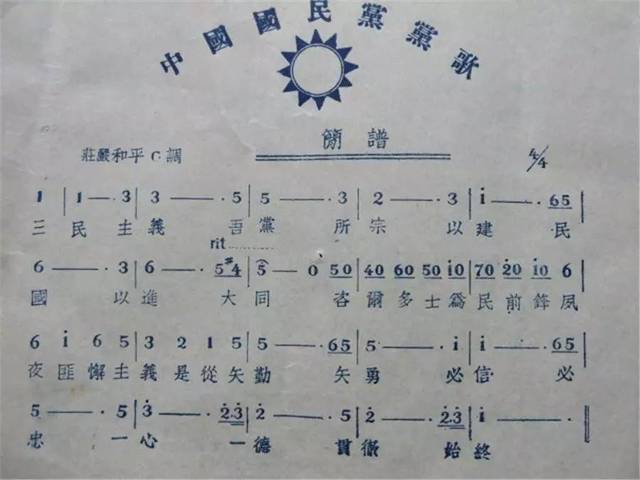 中國國民黨黨歌
簡譜
莊嚴和平 C 調 4/4
1 | 1 — · 3 | 3 — · 5 | 5 — · 3 | 2 — · 3 | i — · 65 |
三民主義吾黨所宗以建民
rit.........
6 — · 3 | 6 — · 5#4 | 5 — 0 50 | 40 60 50 i0 | 70 20 i0 6 |
國以進大同咨爾多士為民前鋒夙
6 i 6 5 | 3 2 1 5 | 5 — · 65 | 5 — · i | i — · 65 |
夜匪懈主義是從矢勤矢勇必信必
5 — · 5 | 3 — · 2·3 | 2 — · 5 | 2 — · 2·3 | i — · ‖
忠一心一德貫徹始終